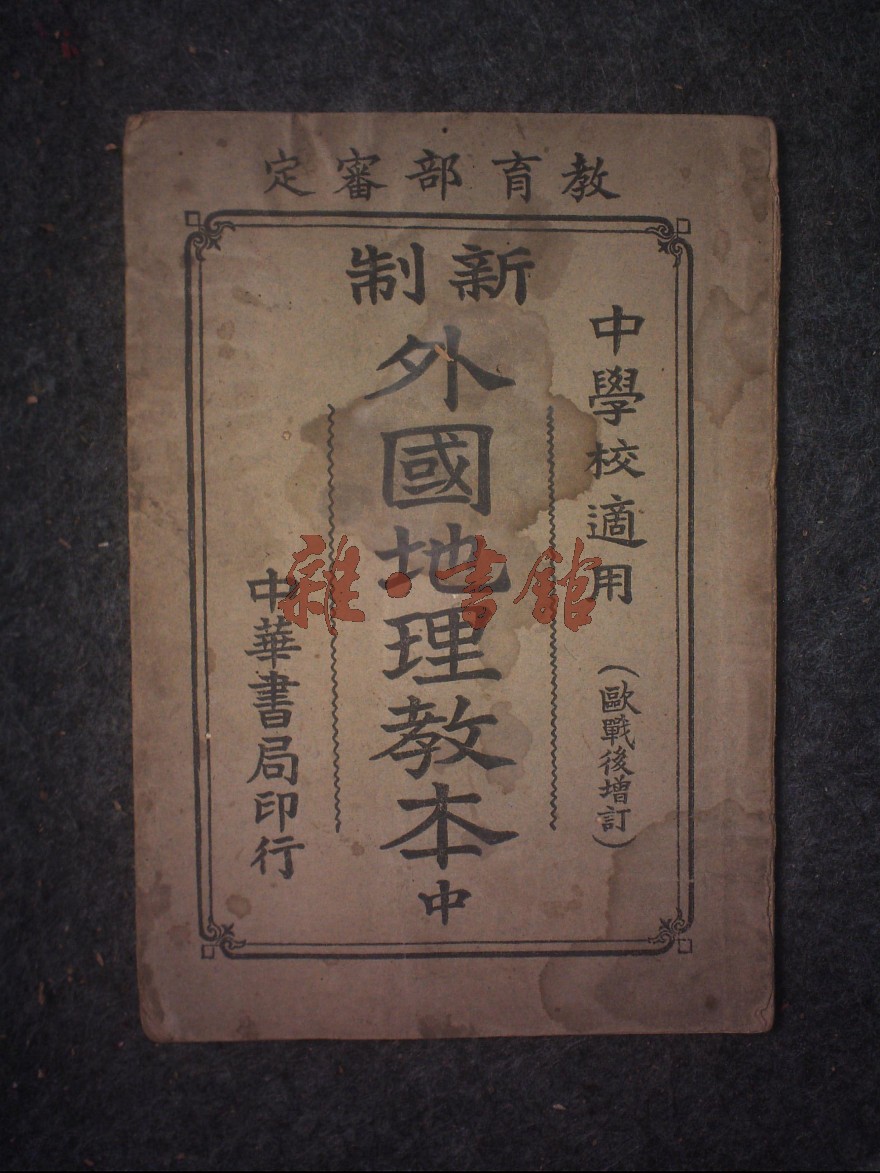 教育部審定
新制
中學校適用
（歐戰後增訂）
外國地理教本中
中華書局印行
雜·書館